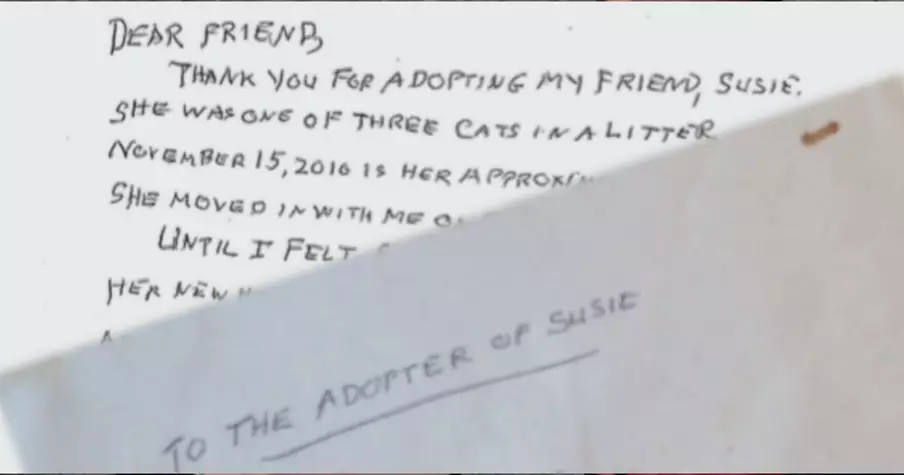 DEAR FRIEND,
THANK YOU FOR ADOPTING MY FRIEND, SUSIE.
SHE WAS ONE OF THREE CATS IN A LITTER
NOVEMBER 15, 2010 IS HER
SHE MOVED IN WITH ME
UNTIL I FELT
HER NEW
TO THE ADOPTER OF SUSIE